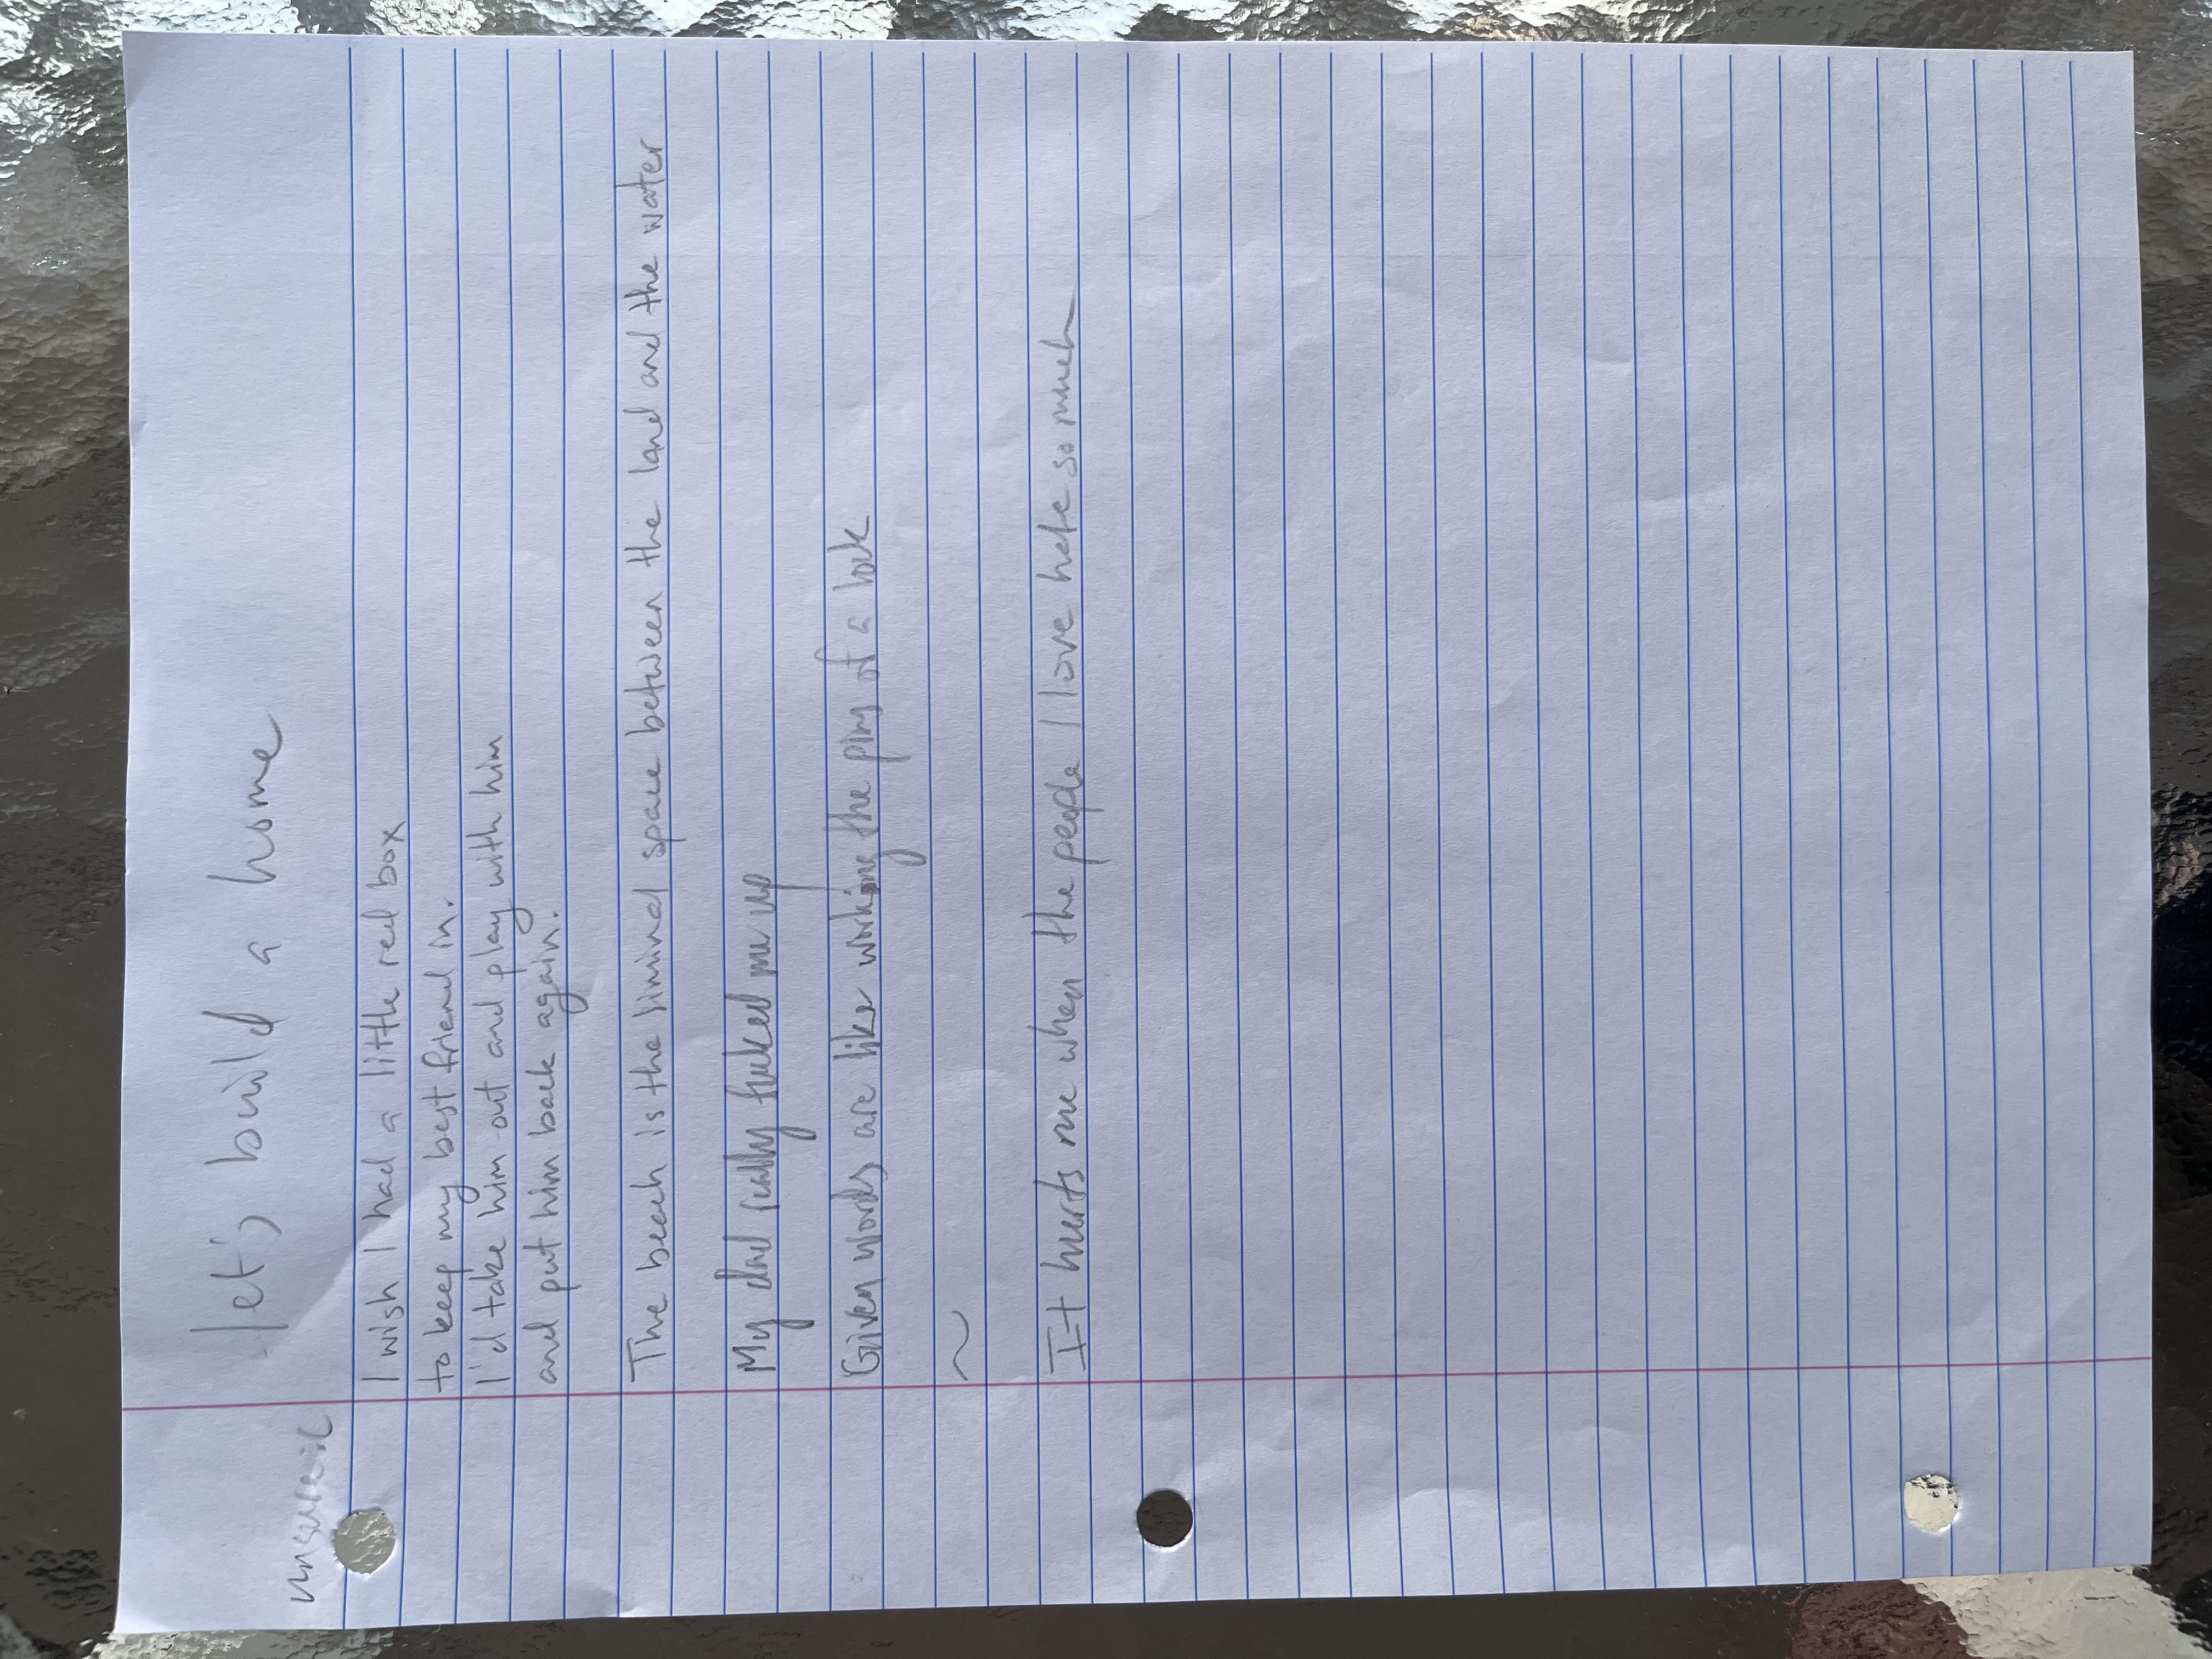 let's build a home
I wish I had a little red box
to keep my best friend in.
I'd take him out and play with him
and put him back again.
The beach is the liminal space between the land and the water
My dad really fucked me up
Given words are like working the pins of a lock
~
It hurts me when the people I love hate so much